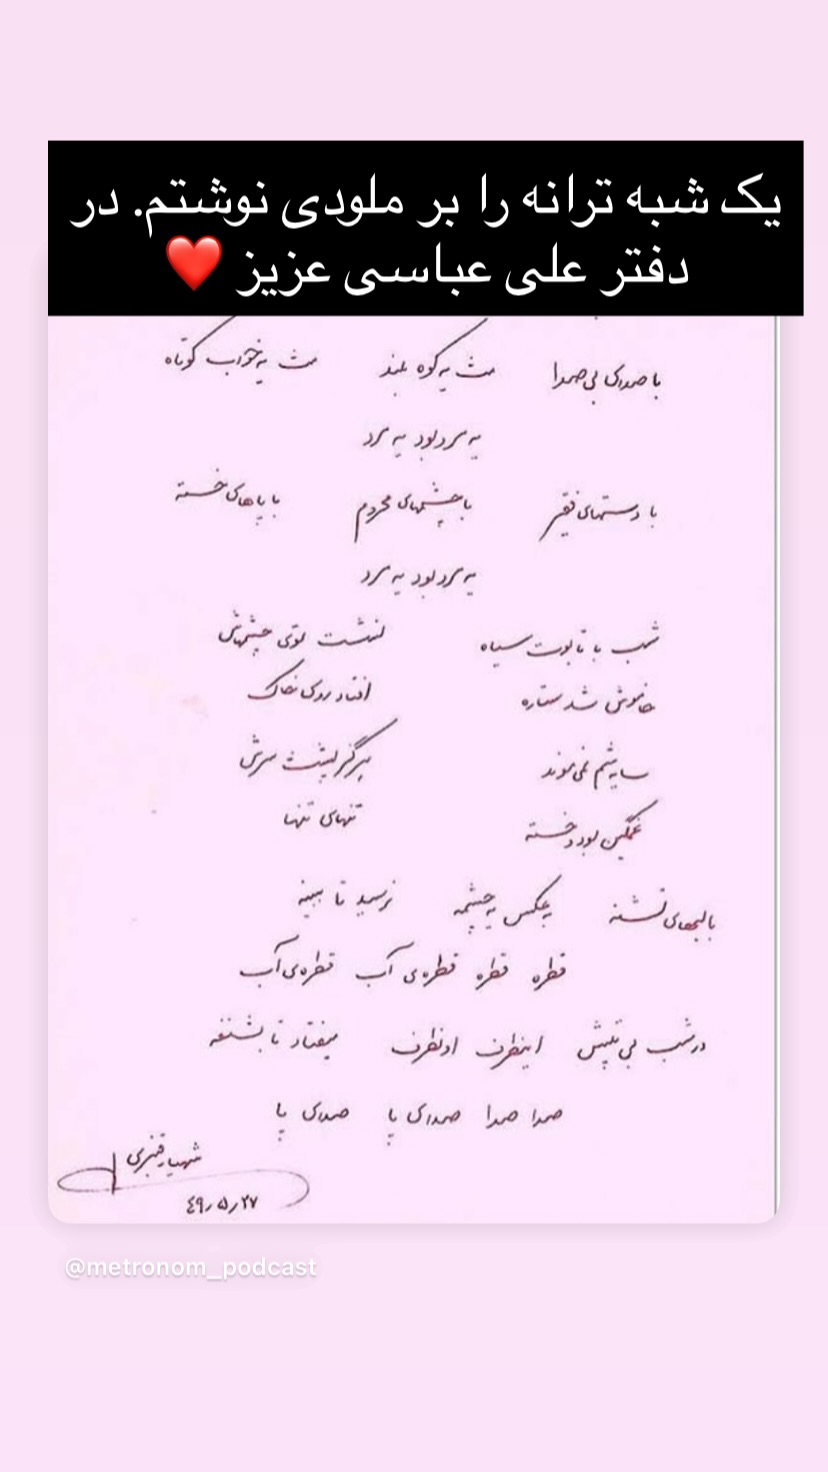 یک شبه ترانه را بر ملودی نوشتم. در
دفتر علی عباسی عزیز ❤️
با صدای بی صدا مث یه کوه بلند مث یه خواب کوتاه
یه مرد بود یه مرد
با دستهای فقیر با چشمهای محروم با پاهای خسته
یه مرد بود یه مرد
شب با تابوت سیاه نشست توی چشمهاش
خاموش شد ستاره افتاد روی خاک
سایه‌شم نمی‌موند هرگز پشت سرش
غمگین بود و خسته تنهای تنها
با لبهای تشنه به عکس یه چشمه نرسید تا ببینه
قطره قطره قطره‌ی آب قطره‌ی آب
در شب بی تپش اینطرف اونطرف میفتاد تا بشنفه
صدا صدا صدای پا صدای پا
شهیار قنبری
۴۹٫۵٫۲۷
@metronom_podcast